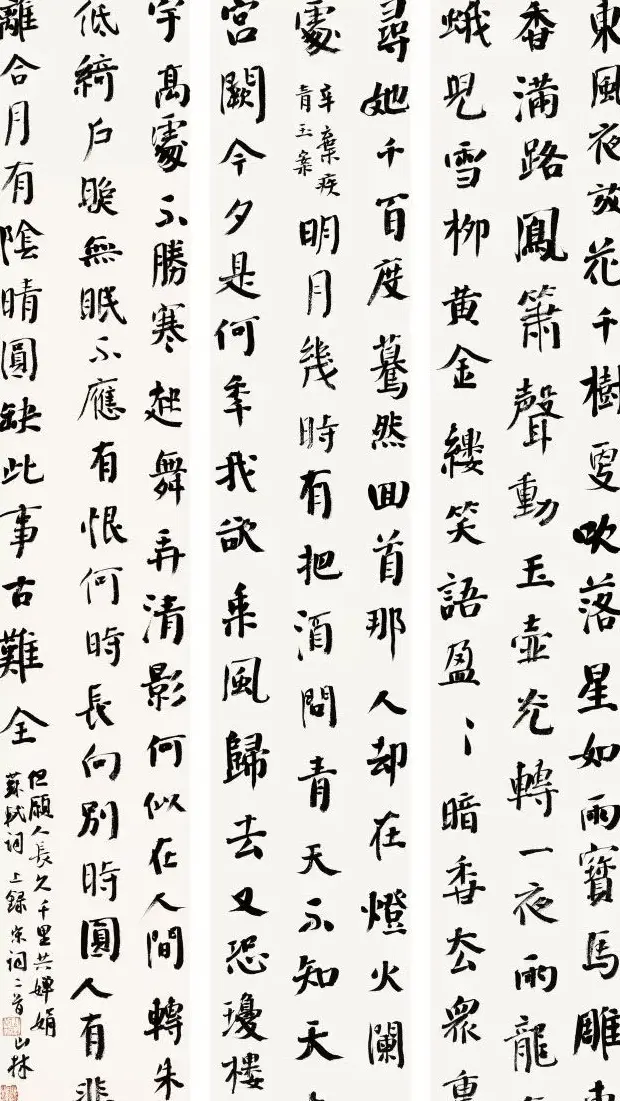 東風夜放花千樹更吹落星如雨寶馬雕
香滿路鳳簫聲動玉壺光轉一夜魚龍
蛾兒雪柳黃金縷笑語盈〻暗香去眾
尋她千百度驀然回首那人却在燈火闌
處
辛棄疾
青玉案
明月幾時有把酒問青天不知天
宮闕今夕是何年我欲乘風歸去又恐瓊樓
宇高處不勝寒起舞弄清影何似在人間轉朱
低綺戶照無眠不應有恨何時長向別時圓人有悲
離合月有陰晴圓缺此事古難全
但願人長久千里共嬋娟
蘇軾詞上錄宋詞二首山林